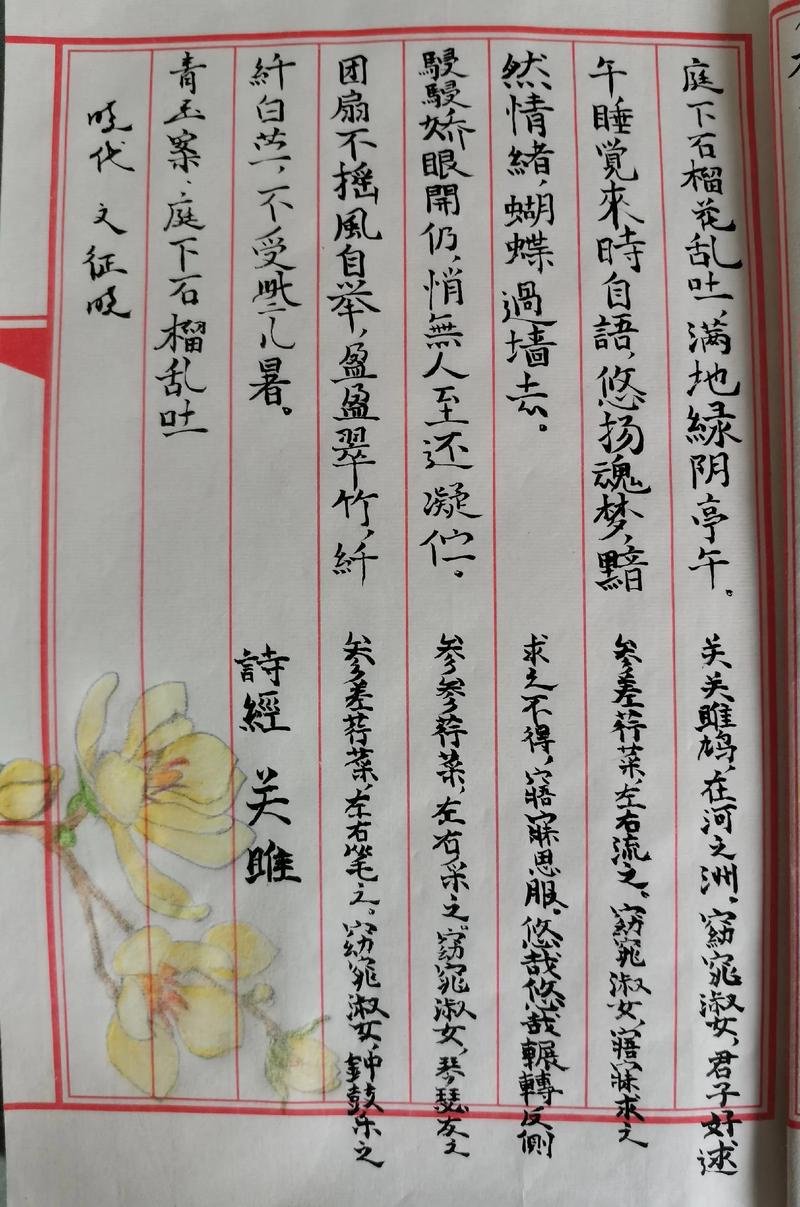 庭下石榴花乱吐，满地緑阴亭午。
午睡覚來時自語，悠扬魂梦，黯
然情緒，蝴蝶過墙去。
駸駸娇眼開仍，悄無人至还凝伫。
团扇不摇風自举，盈盈翠竹，纤
纤白苎，不受些儿暑。
青玉案·庭下石榴乱吐
明代 文征明
关关雎鸠，在河之洲。窈窕淑女，君子好逑
参差荇菜，左右流之。窈窕淑女，寤寐求之
求之不得，寤寐思服。悠哉悠哉輾轉反側
参参荇菜，左右采之。窈窕淑女，琴瑟友之
参差荇菜，左右笔之。窈窕淑女，鈡鼓乐之
詩經 关雎